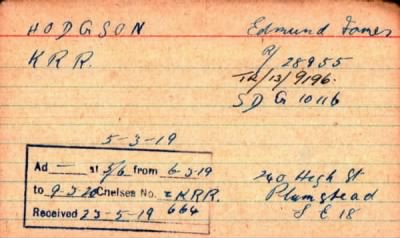 HODGSON Edmund James
KRR. R/ 28955
TR/13/9196.
SD G 10116
5-3-19
Ad — at 5/6 from 6-3-19
to 9-3-20 Chelsea No. = KRR.
Received 23-5-19 664
240 High St
Plumstead
S E 18